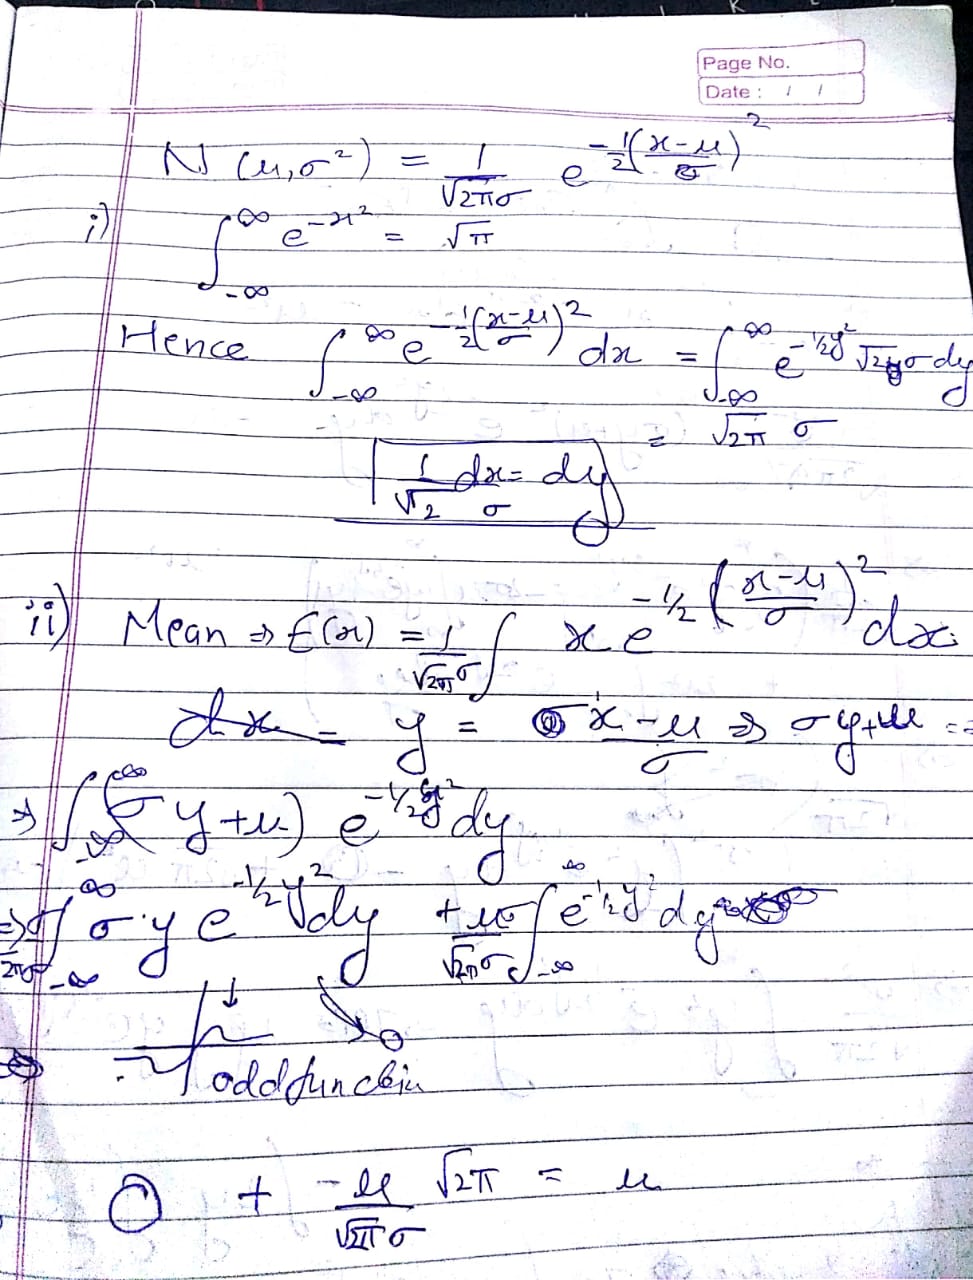 Page No.
Date : / /
N (μ, σ²) = 1/√2πσ e^-1/2((x-μ)/σ)²
i) ∫_-∞^∞ e^-x² = √π
Hence ∫_-∞^∞ e^-1/2((x-μ)/σ)² dx = ∫_-∞^∞ e^-1/2y² √2 σ dy
= √2π σ
1/√2 dx/σ = dy
ii) Mean ⇒ E(x) = 1/√2πσ ∫ x e^-1/2((x-μ)/σ)² dx
y = (x-μ)/σ ⇒ σy+μ =
⇒ ∫_-∞^∞ (σy+μ) e^-1/2y² dy
⇒ ∫_-∞^∞ σ·y e^-1/2y² dy + μσ/√2πσ ∫_-∞^∞ e^-1/2y² dy
↓ 0
odd function
0 + -μ/√2πσ √2π = μ